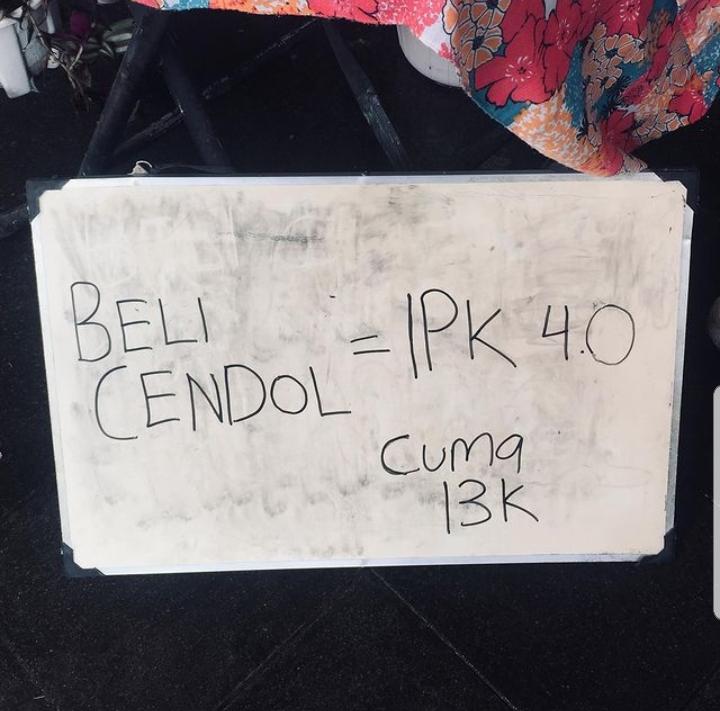 BELI
CENDOL = IPK 4.0
Cuma
13K